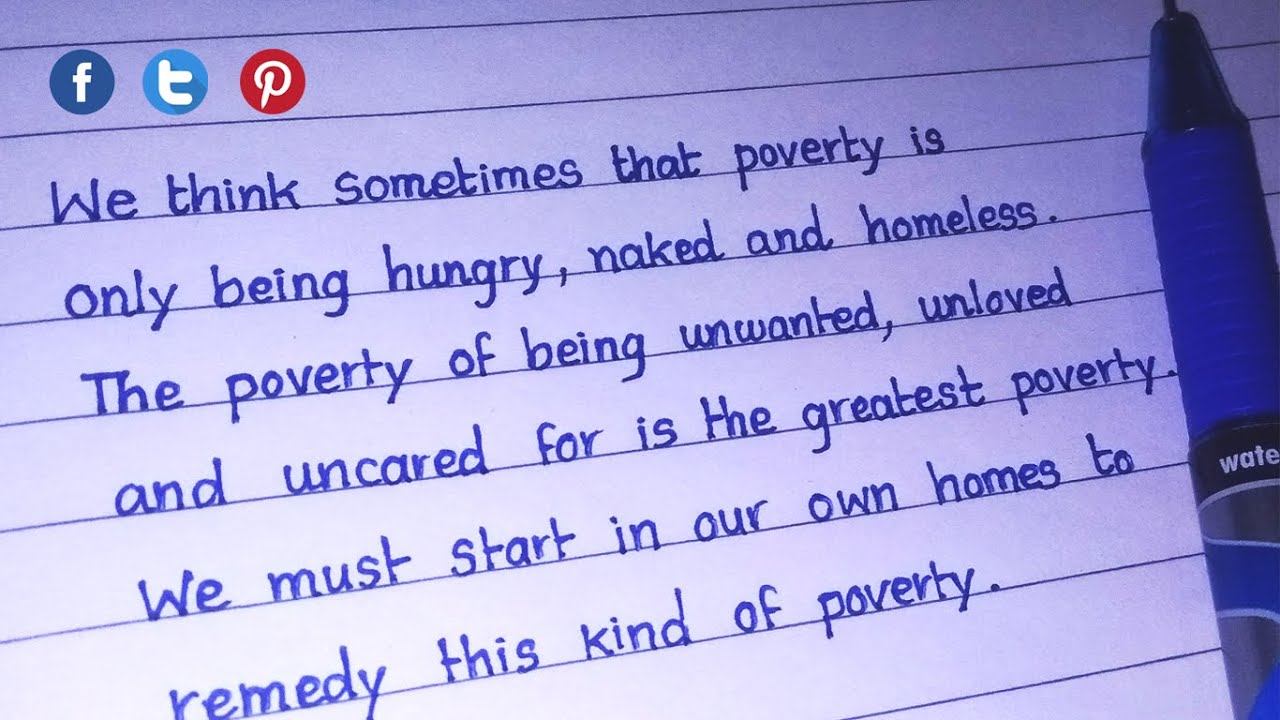 We think sometimes that poverty is
only being hungry, naked and homeless.
The poverty of being unwanted, unloved
and uncared for is the greatest poverty.
We must start in our own homes to
remedy this kind of poverty.